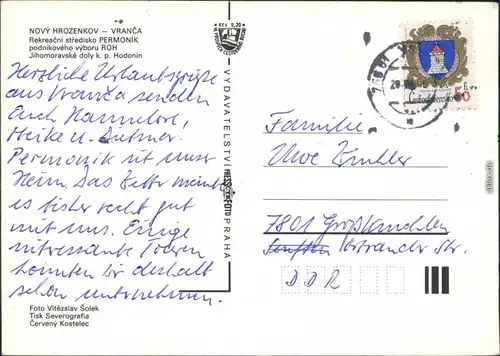 NOVÝ HROZENKOV – VRANČA
Rekreační středisko PERMONÍK
podnikového výboru ROH
Jihomoravské doly k. p. Hodonín
Kčs 0,20
Herzliche Urlaubsgrüße
aus Vranča senden
Euch Hannelore,
Heike u. Dietmar.
Permonik ist unser
Heim. Das Wetter meinte
es bisher recht gut
mit uns. Einige
interessante Touren
konnten wir deshalb
schon unternehmen.
Foto Vítězslav Šolek
Tisk Severografia
Červený Kostelec
VYDAVATELSTVÍ PRESSFOTO PRAHA
Československo
50
Familie
Uwe
7801 Großkmehlen
Ortrander Str.
DDR